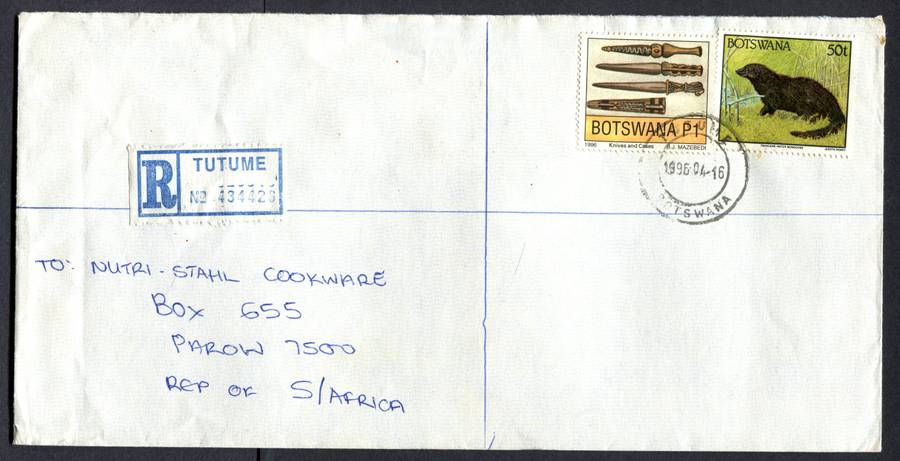 BOTSWANA 50t
BOTSWANA P1
1996 Knives and Cases B.J. MAZEBEDI
1996-04-16
BOTSWANA
R
TUTUME
No 434426
TO: NUTRI-STAHL COOKWARE
BOX 655
PAROW 7500
REP OF S/AFRICA